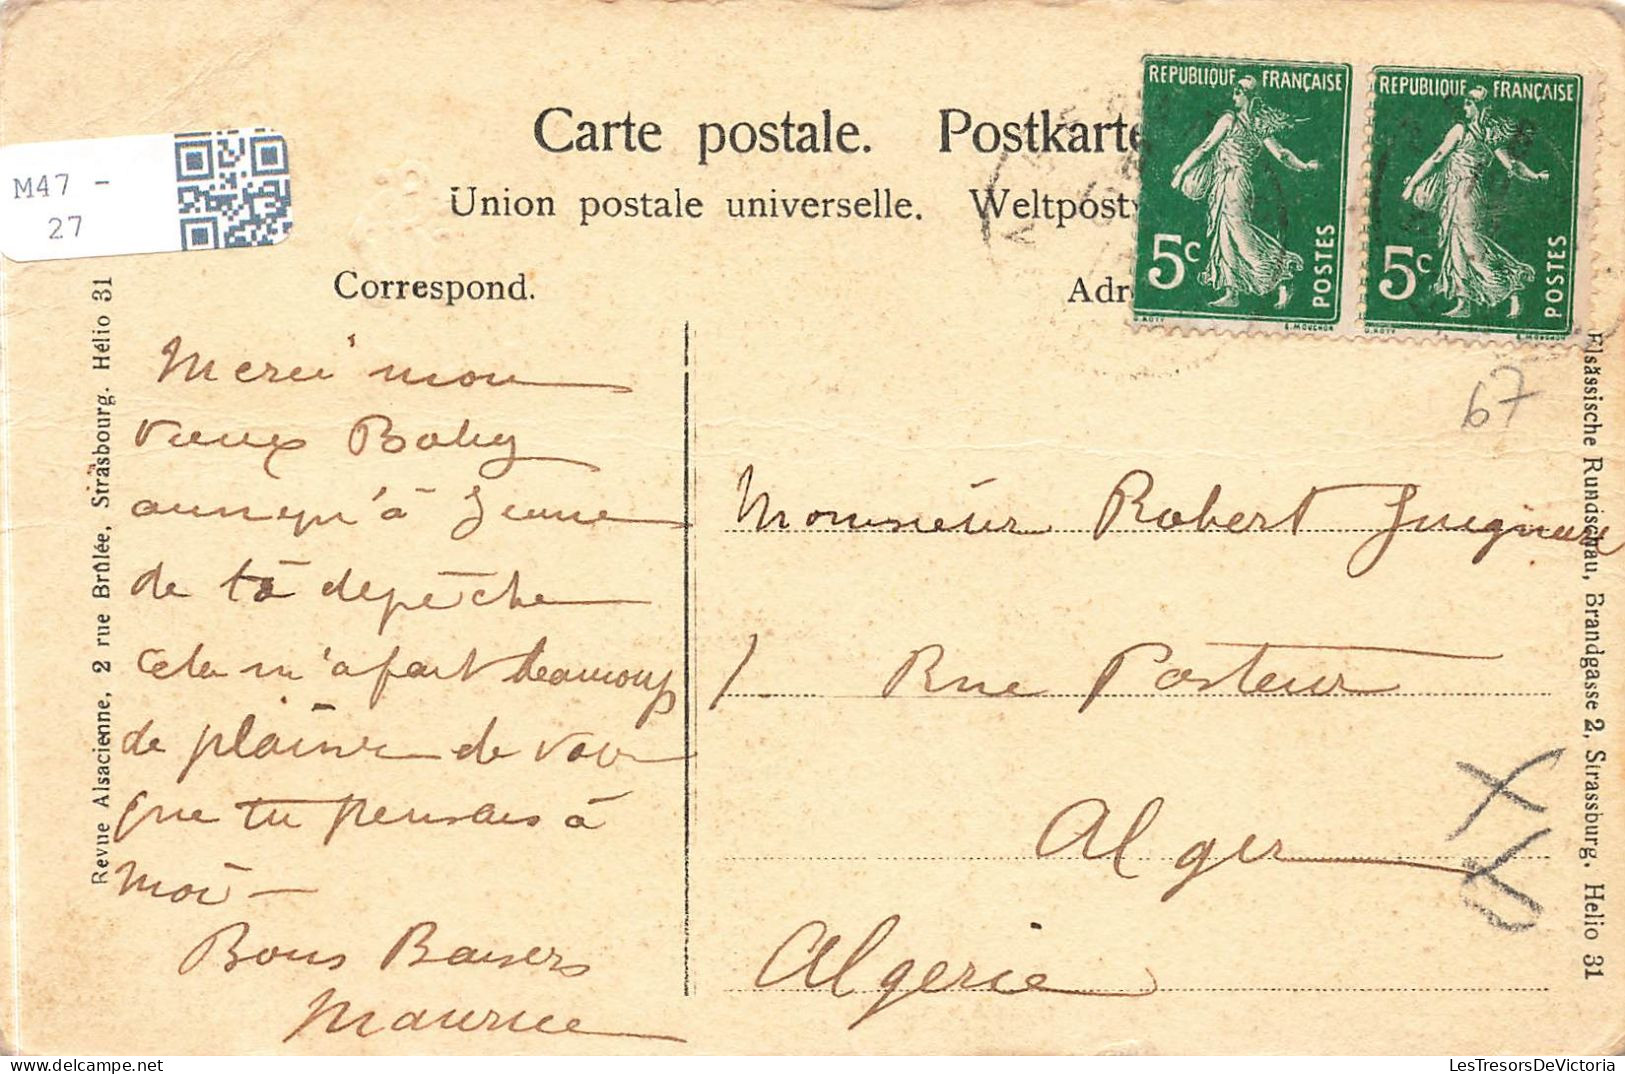 REPUBLIQUE FRANÇAISE
5c
POSTES
O. ROTY
E. MOUCHON
REPUBLIQUE FRANÇAISE
5c
POSTES
O. ROTY
E. MOUCHON
Carte postale. Postkarte
Union postale universelle. Weltpost
M47 -
27
Correspond.
Adr
67
Revue Alsacienne, 2 rue Brûlée, Strasbourg. Hélio 31
Merci mon
vieux Boby
ainsi qu'à
de ta depêche
cela m'a fait beaucoup
de plaisir de voir
que tu pensais à
moi —
Bons Baisers
Maurice
Monsieur Robert
1 Rue Pasteur
Alger
Algerie
Elsässische Rundschau, Brandgasse 2, Strassburg. Helio 31
LesTresorsDeVictoria